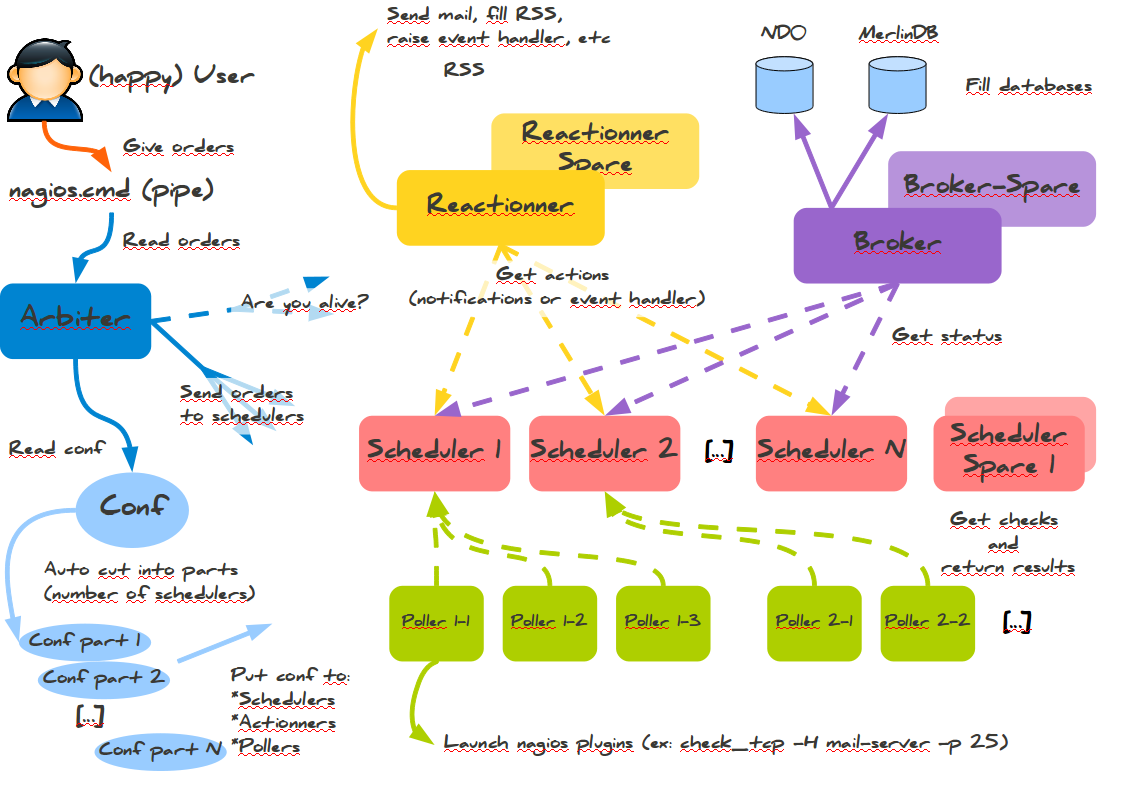 Send mail, fill RSS,
raise event handler, etc
RSS
NDO
MerlinDB
Fill databases
(happy) User
Give orders
nagios.cmd (pipe)
Read orders
Reactionner
Spare
Reactionner
Broker-Spare
Broker
Arbiter
Are you alive?
Get actions
(notifications or event handler)
Get status
Send orders
to schedulers
Read conf
Scheduler 1
Scheduler 2
[...]
Scheduler N
Scheduler
Spare 1
Conf
Get checks
and
return results
Auto cut into parts
(number of schedulers)
Poller 1-1
Poller 1-2
Poller 1-3
Poller 2-1
Poller 2-2
[...]
Conf part 1
Conf part 2
[...]
Conf part N
Put conf to:
*Schedulers
*Actionners
*Pollers
Launch nagios plugins (ex: check_tcp -H mail-server -p 25)